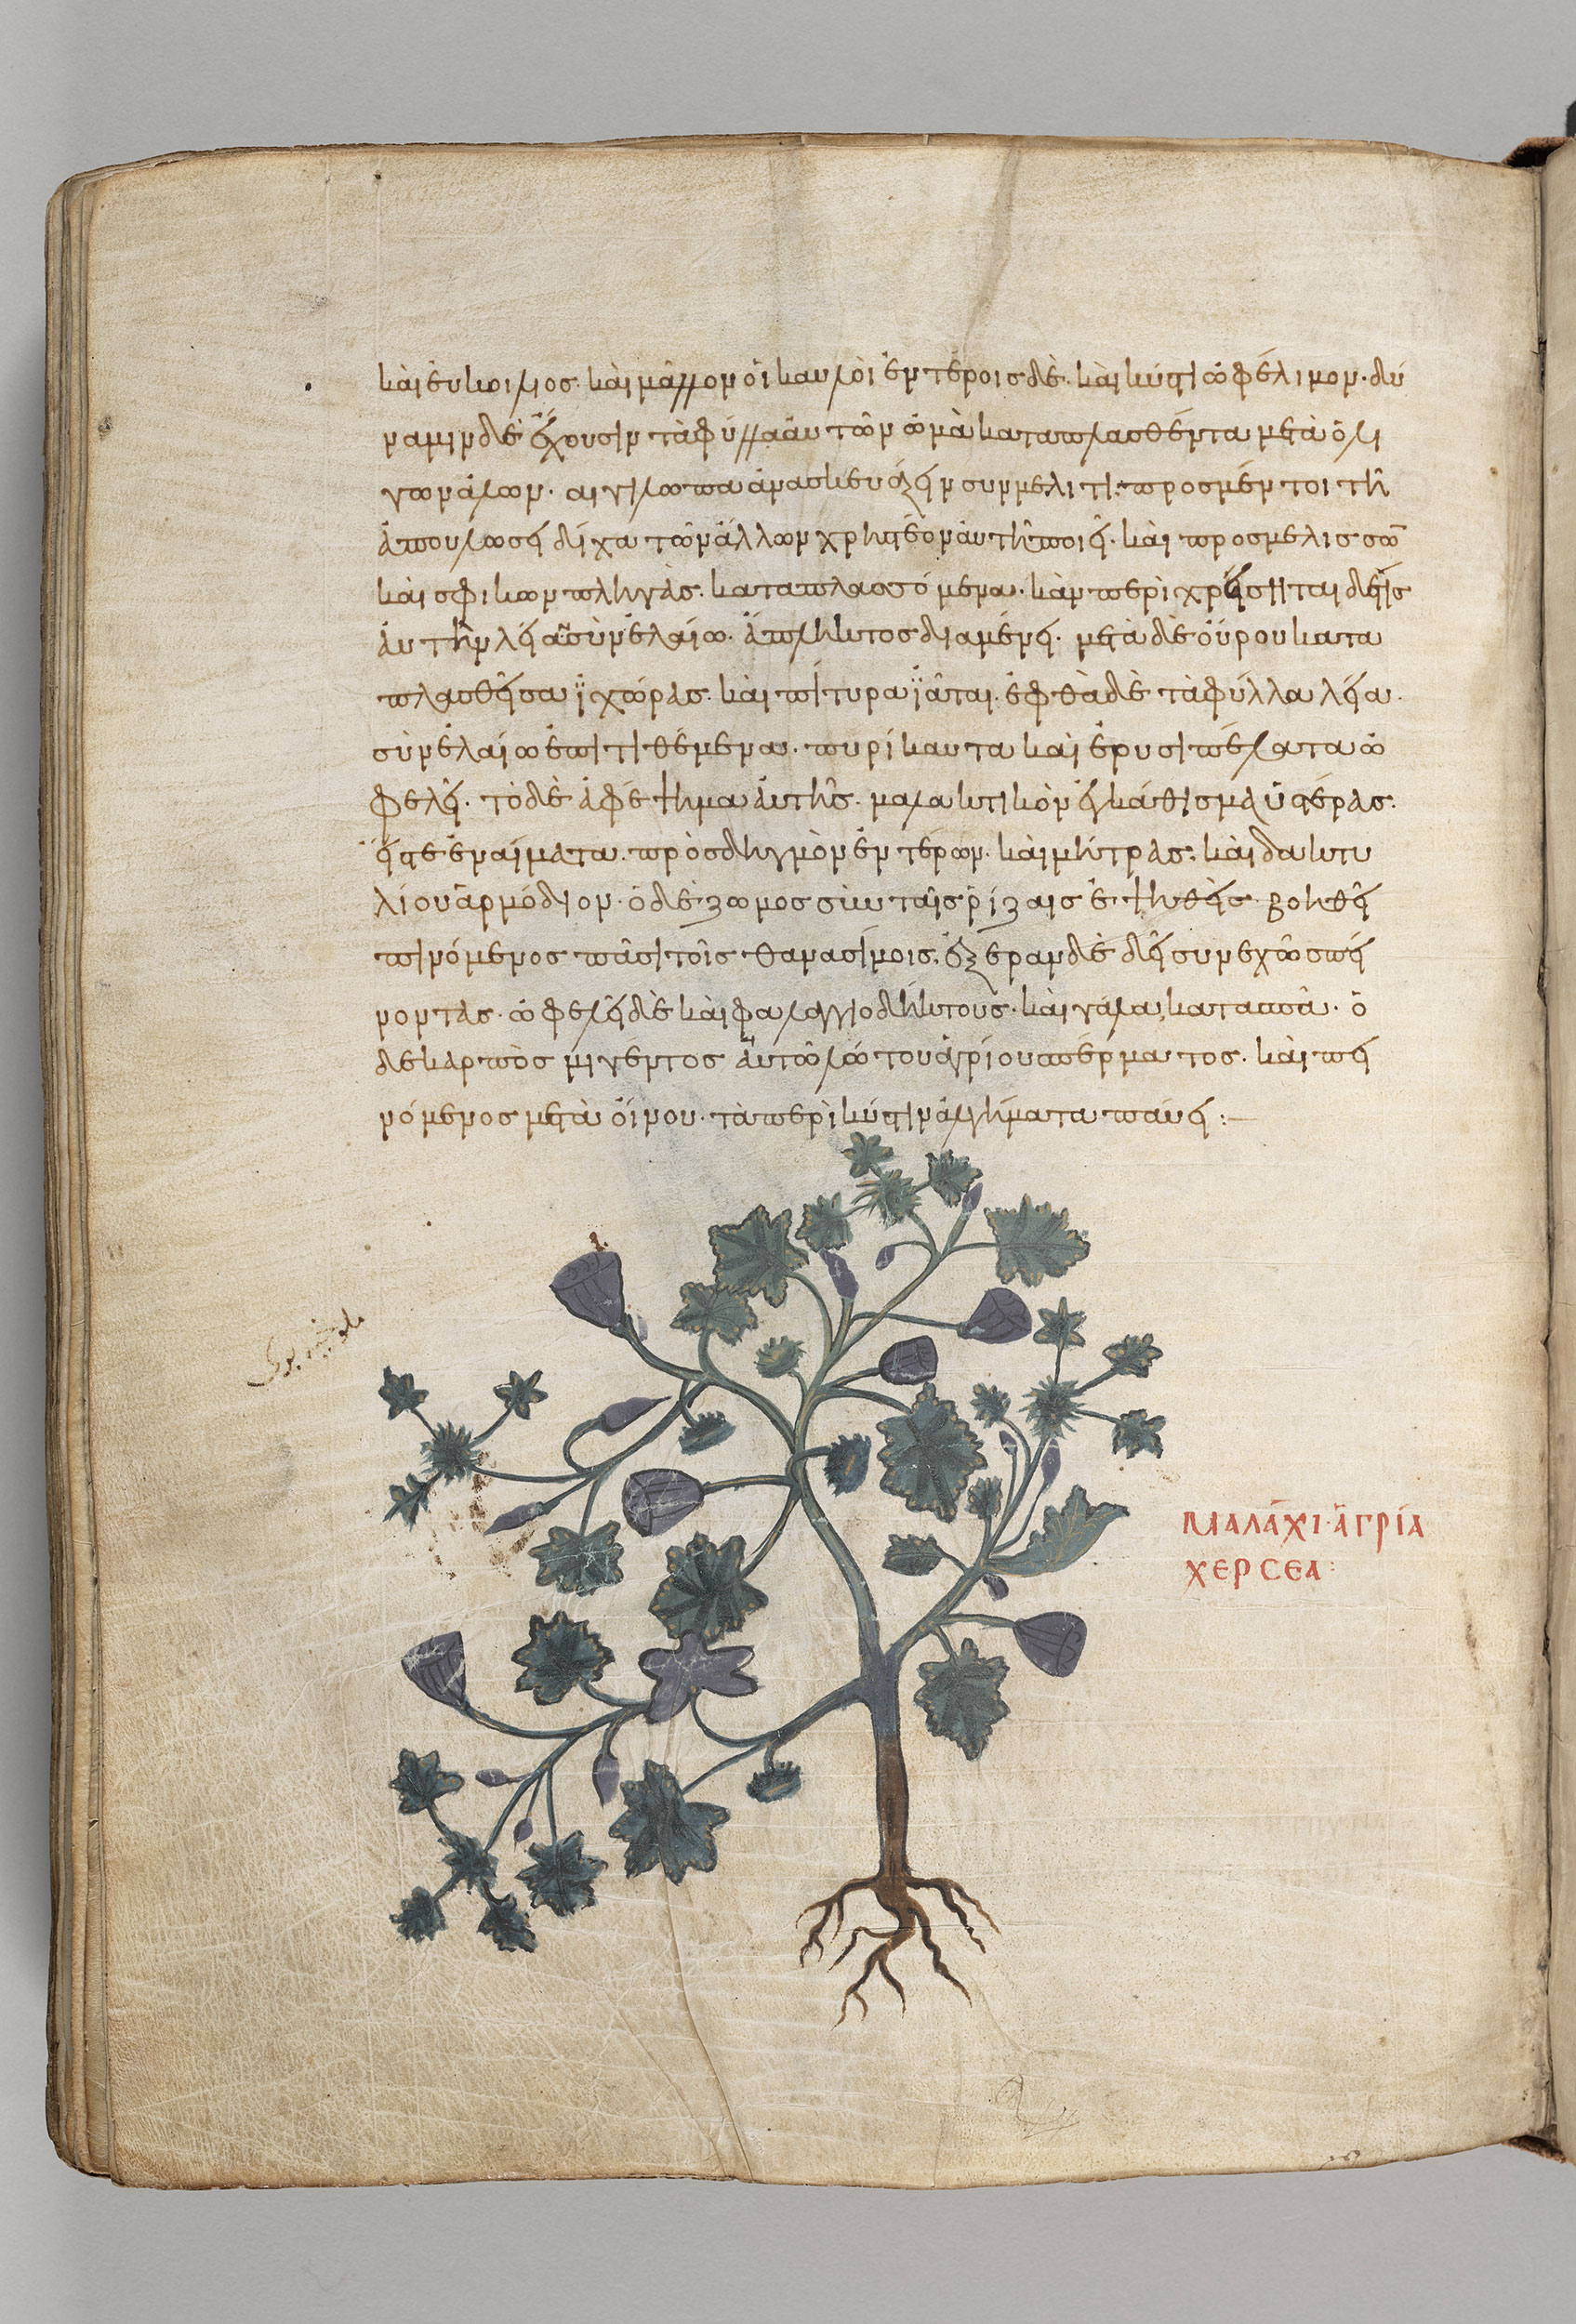 καὶ εὐκοίλιος· καὶ μᾶλλον οἱ καυλοὶ ἐντέροις δὲ· καὶ κύστι ὠφέλιμον· δύ
ναμιν δὲ ἔχουσιν τὰ φύλλα αὐτῶν ὠμὰ καταπλασθέντα μετὰ ὀλί
γων ἁλῶν· αιγίλωπα ἀνασκευάζειν συν μέλιτι· προσμέντοι τὴ
ἀπουλώσει δίχα τῶν ἁλλων χρηστέον ἀυτῆ ποιεῖ· καὶ προσμελισσῶ
καὶ σφικων πληγὰς· καταπλασσόμενα· κὰν περὶ χρείσηται δέ τις
ἀυτὴν λεία σὺν ἐλαίω· ἄπληκτος διαμένει· μετὰ δὲ οὔρου κατα
πλασθεῖσα ϊχώρας· καὶ πίτυρα ϊᾶται· ἑφθὰ δὲ τὰ φύλλα λεία·
σὺν ἐλαίω ἐπιτιθέμενα· πυρίκαυτα καὶ ἐρυσιπέλατα ὠ
φελεῖ· τὸ δὲ ἀφέτημα ἀυτῆς· μαλακτικὸν εἰ κάθισμα ὑστέρας·
εἴς τε ἐναίματα· πρὸς δηγμὸν ἐντέρων· καὶ μήτρας· καὶ δακτυ
λίου ἁρμόδιον· ὁ δὲ ζωμος σὺν ταῖς ῥίζαις ἑτηθεὶς βοηθεῖ
πινόμενος πᾶσι τοῖς θανασίμοις· ἐξεραν δὲ δεῖ συνεχῶς πεί
νοντας· ὠφελεῖ δὲ καὶ φαλαγγιοδήκτους· καὶ γάλα κατασπᾶ· ὁ
δε καρπὸς μιγεντος ἀυτῶ λώτου ἀγρίου σπέρματος· καὶ πει
νόμενος μετὰ οἴνου· τὰ περὶ κύστιν ἀλγήματα παύει:—
ΜΑΛΆΧΙ· ἈΓΡΊΑ
ΧΕΡСΕΑ: